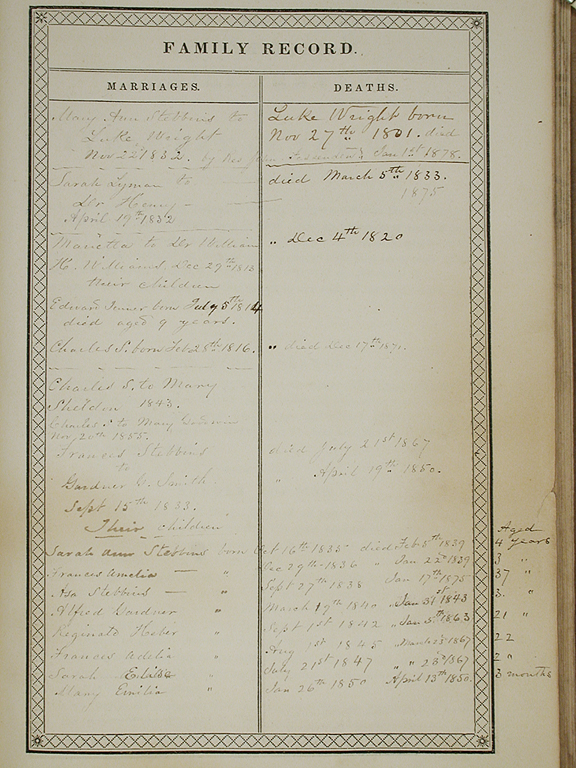 FAMILY RECORD.
MARRIAGES.
DEATHS.
Mary Ann Stebbins to
Luke Wright
Nov 22d 1832.
Luke Wright born
Nov 27th 1801. died
Jan 1st 1878.
Sarah Lyman to
Dr Henry
April 19th 1832
died March 5th 1833.
1875
Marietta to Dr William
H. Williams, Dec 29th 1813
their children
" Dec 4th 1820
Edward Jenner born July 5th 1814
died aged 9 years.
Charles S. born Feb 28th 1816.
" died Dec 17th 1871.
Charles S. to Mary
Sheldon 1843.
Charles S to Mary Goodwin
Nov 20th 1855.
Frances Stebbins
to
Gardner C. Smith.
Sept 15th 1833.
died July 21st 1867
" April 19th 1850.
Their children
Aged
Sarah Ann Stebbins born Oct 16th 1835 died Feb 5th 1839 4 years
Frances Amelia — " Dec 29th 1836 " Jan 22d 1839 3 "
Asa Stebbins — " Sept 27th 1838 Jan 17th 1875 37 "
Alfred Gardner " March 19th 1840 " Jan 31st 1843 3. "
Reginald Heber " Sept 1st 1842 " Jan 5th 1863 21 "
Frances Adelia " Aug 1st 1845 March 23d 1867 22
Sarah Eliza " July 21st 1847 " " 23d 1867 2 "
Mary Emilia " Jan 26th 1850 April 13th 1850. 3 months